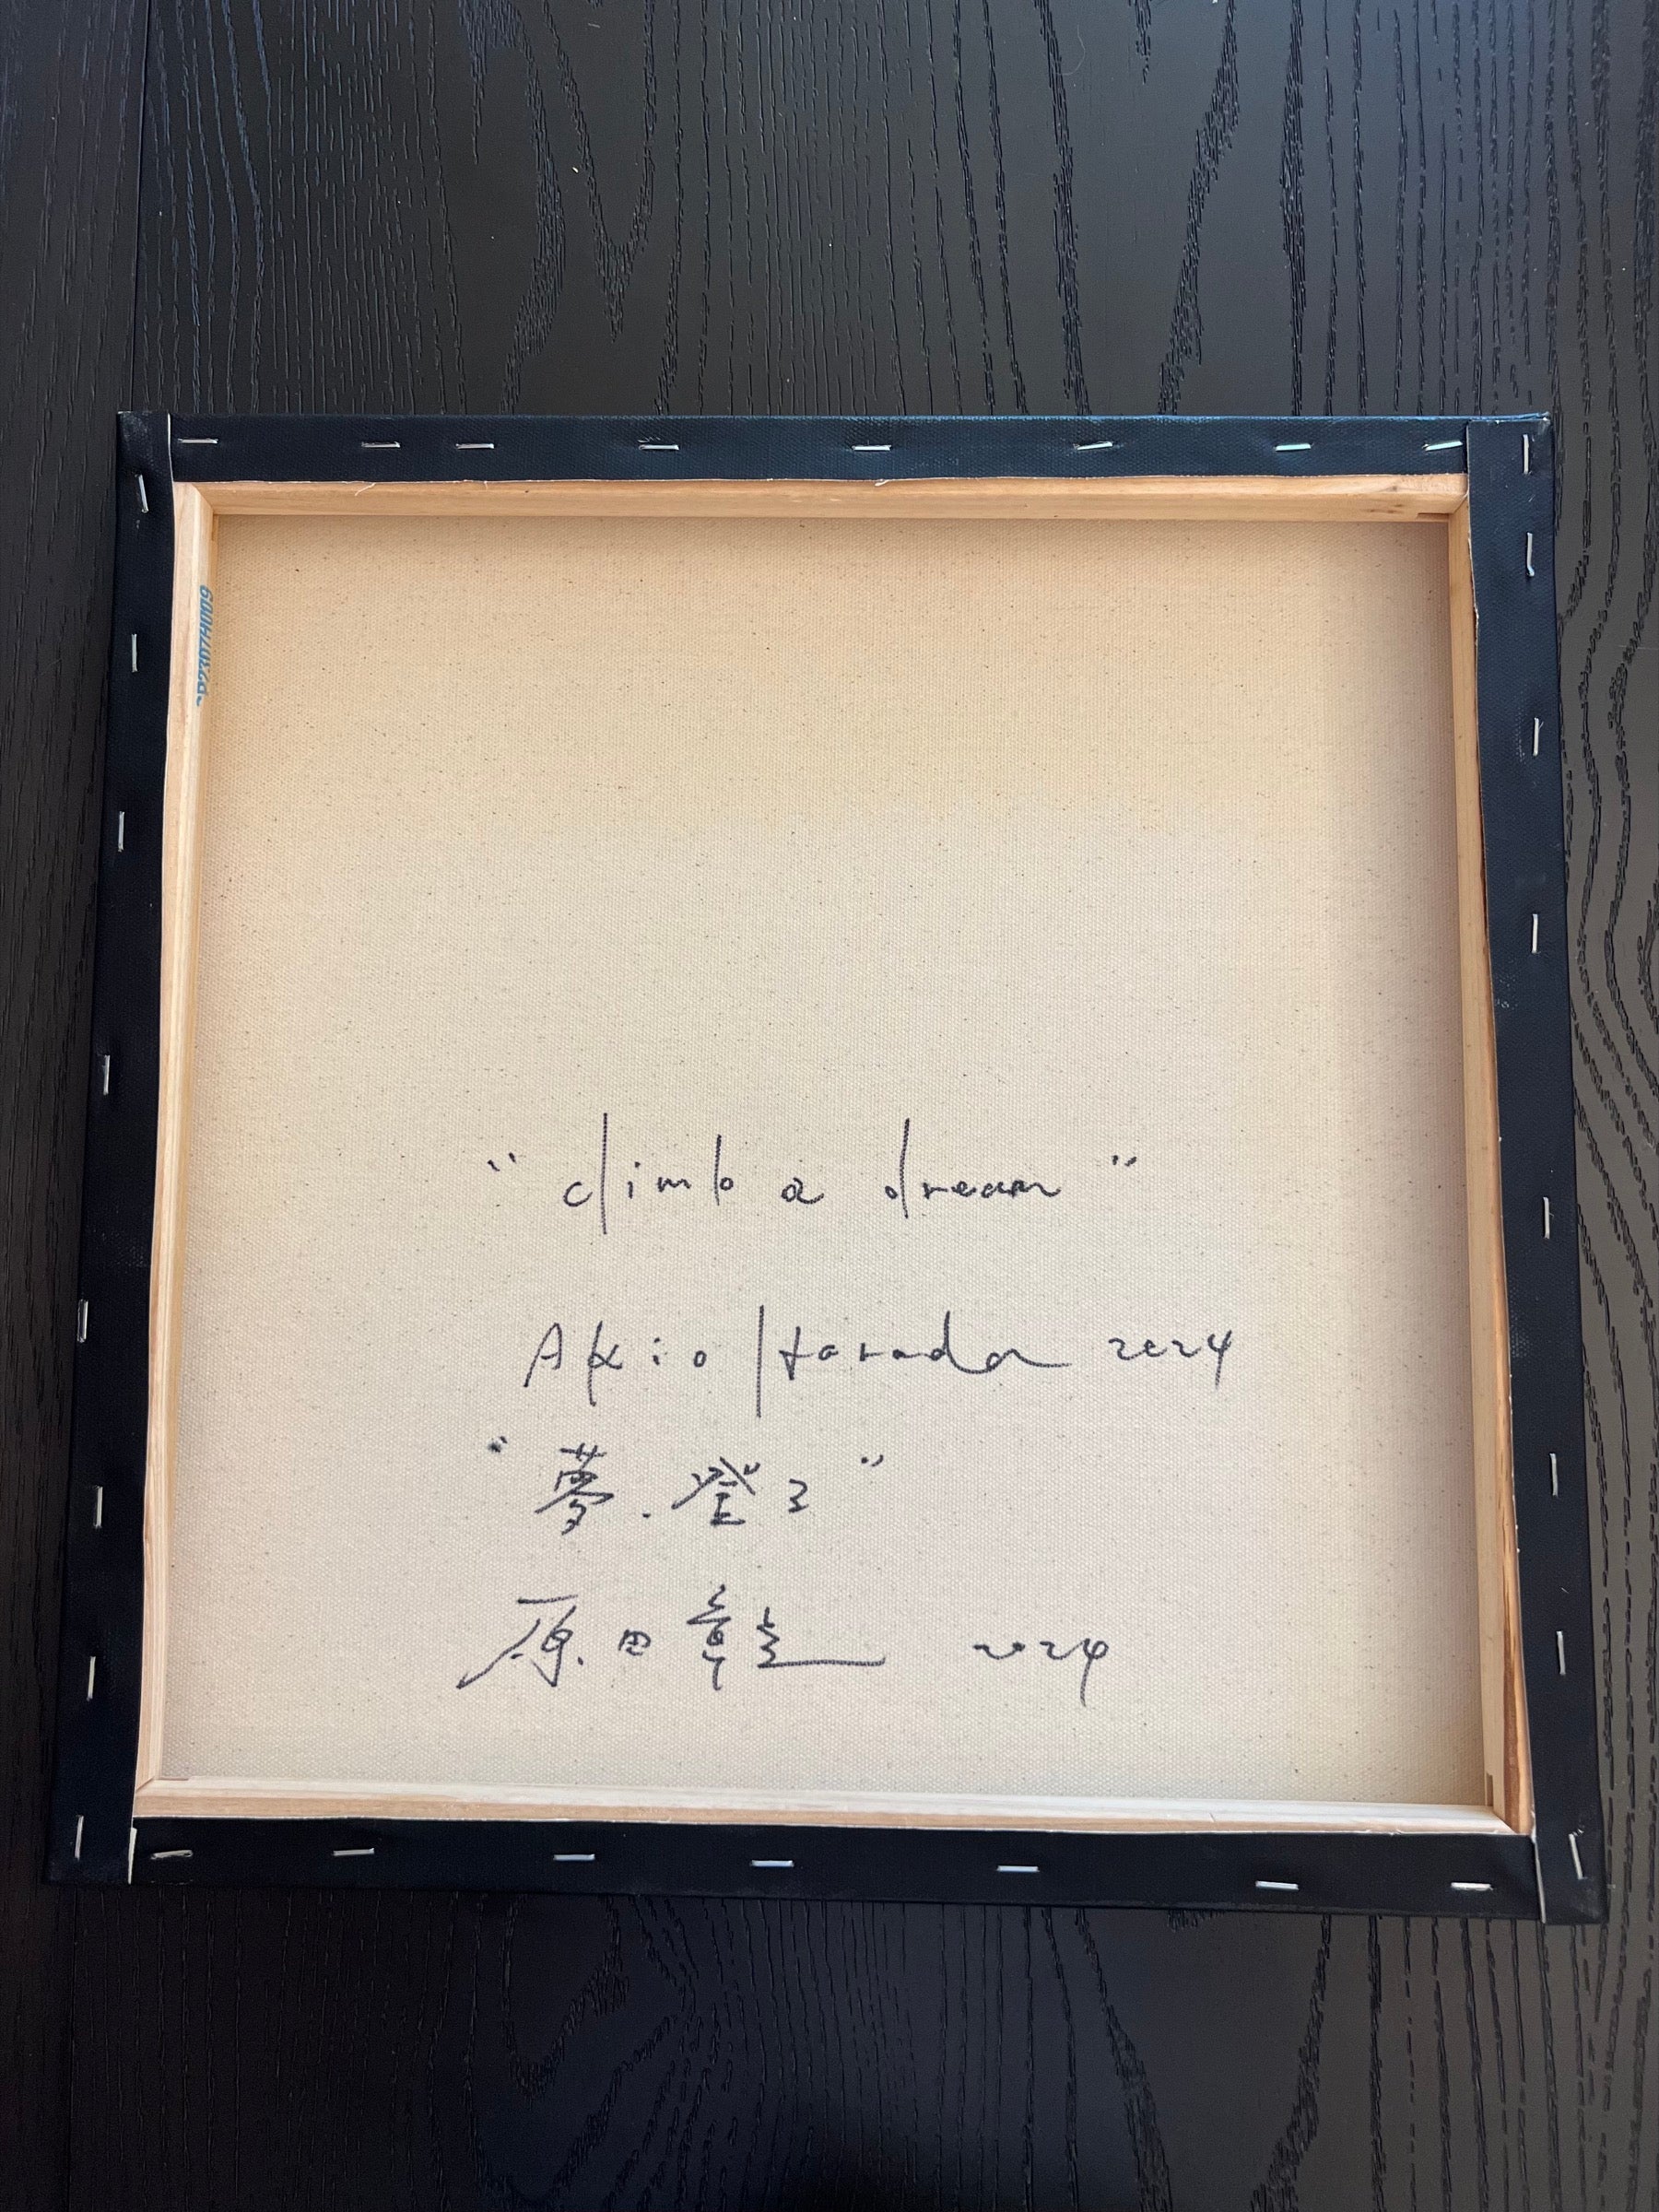 "climb a dream"
Akio Harada 2024
"夢.登る"
原田章 2024